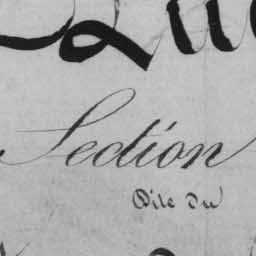 Section
Dite du